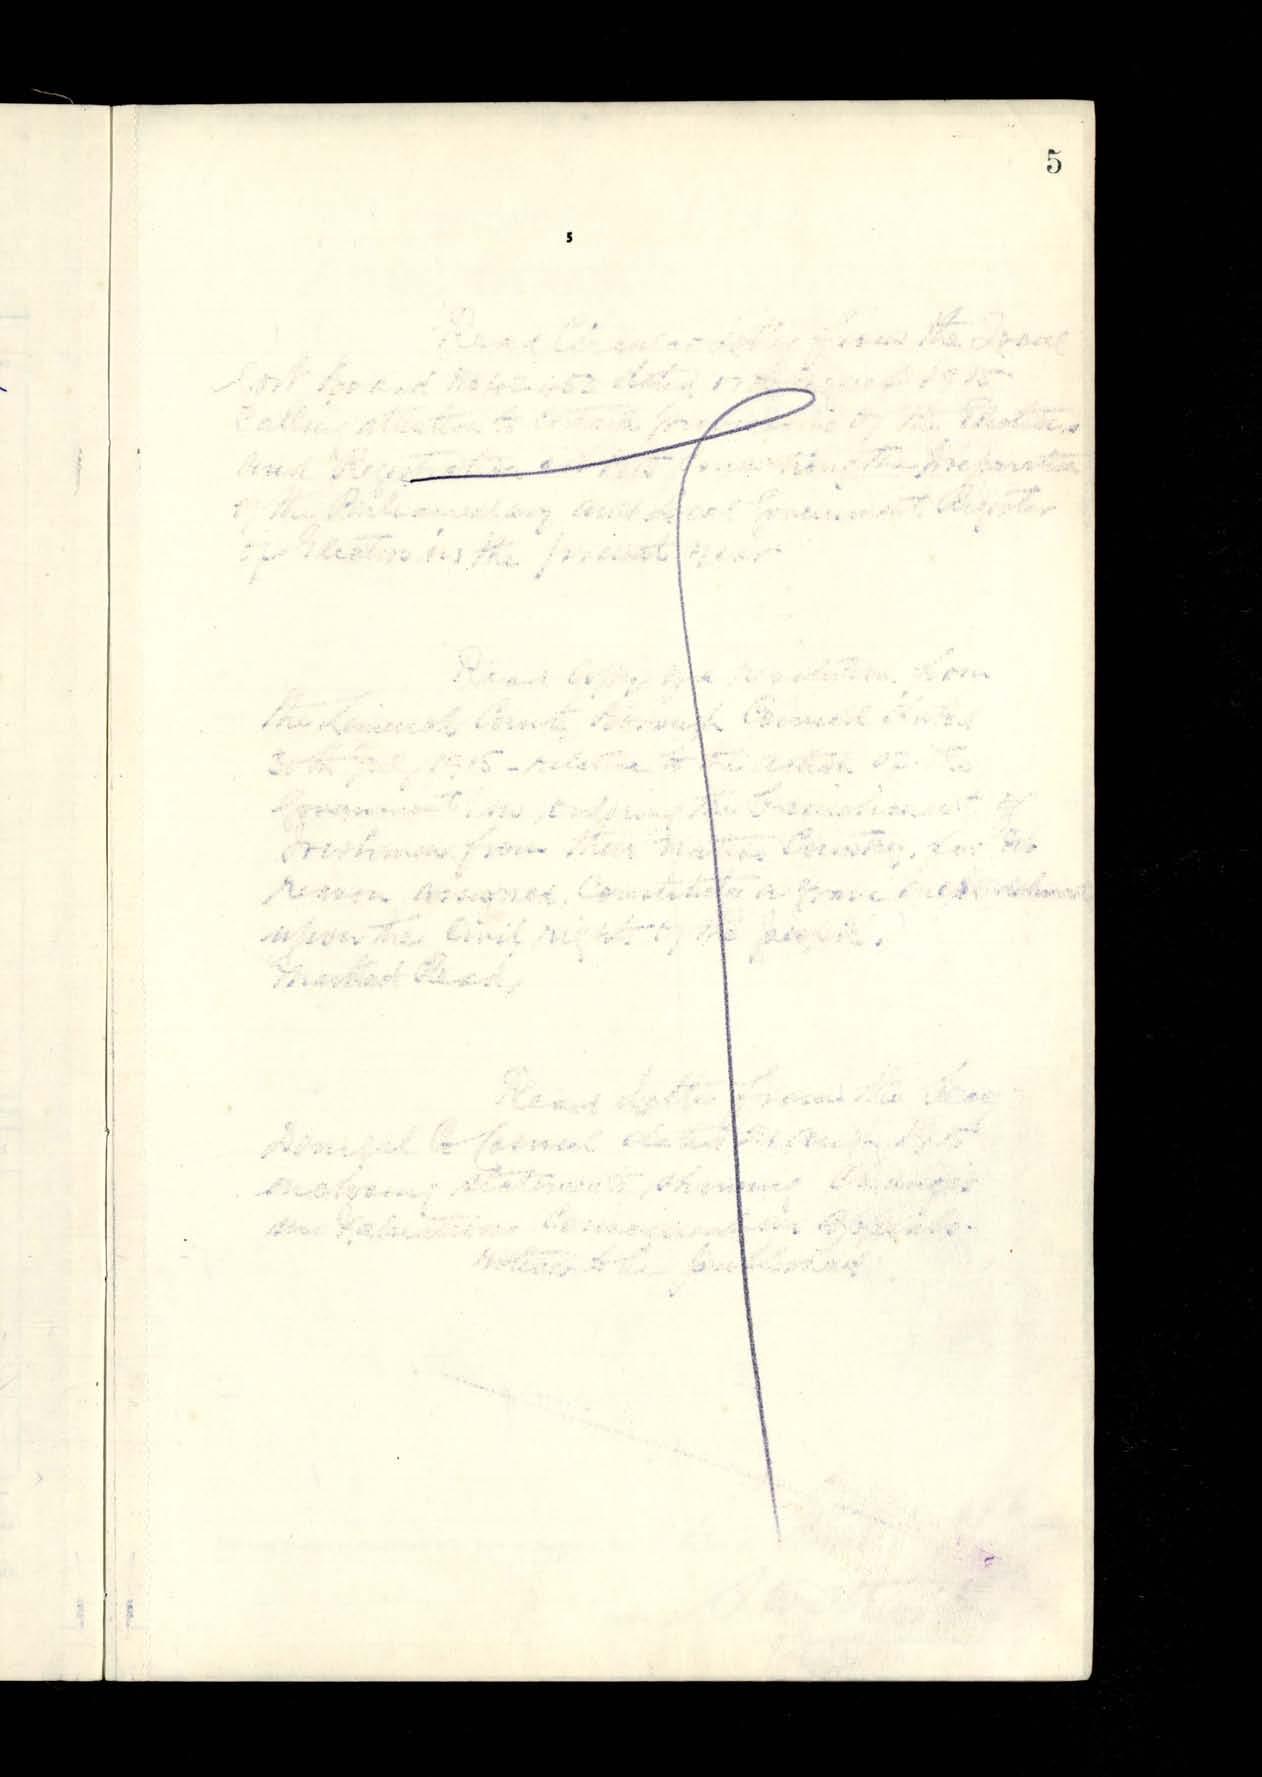 5
5
Read Circular Letter from the Local
Govt Board No dated 17th August 1915
Calling attention to certain provisions of the Elections
and Registration Act 1915 concerning the preparation
of the Parliamentary and Local Government Register
of Electors in the present year
Read Copy of a resolution from
the Limerick County Borough Council dated
30th July 1915 - relative to the action of the
Government in ordering the banishment of
Irishmen from their native Country, for no
reason assigned, Constitutes a grave encroachment
upon the Civil rights of the people.
Marked Read,
Read Letter from the Secy
Donegal Co Council dated 1915
enclosing statements showing Changes
in Valuations
Notices to be published